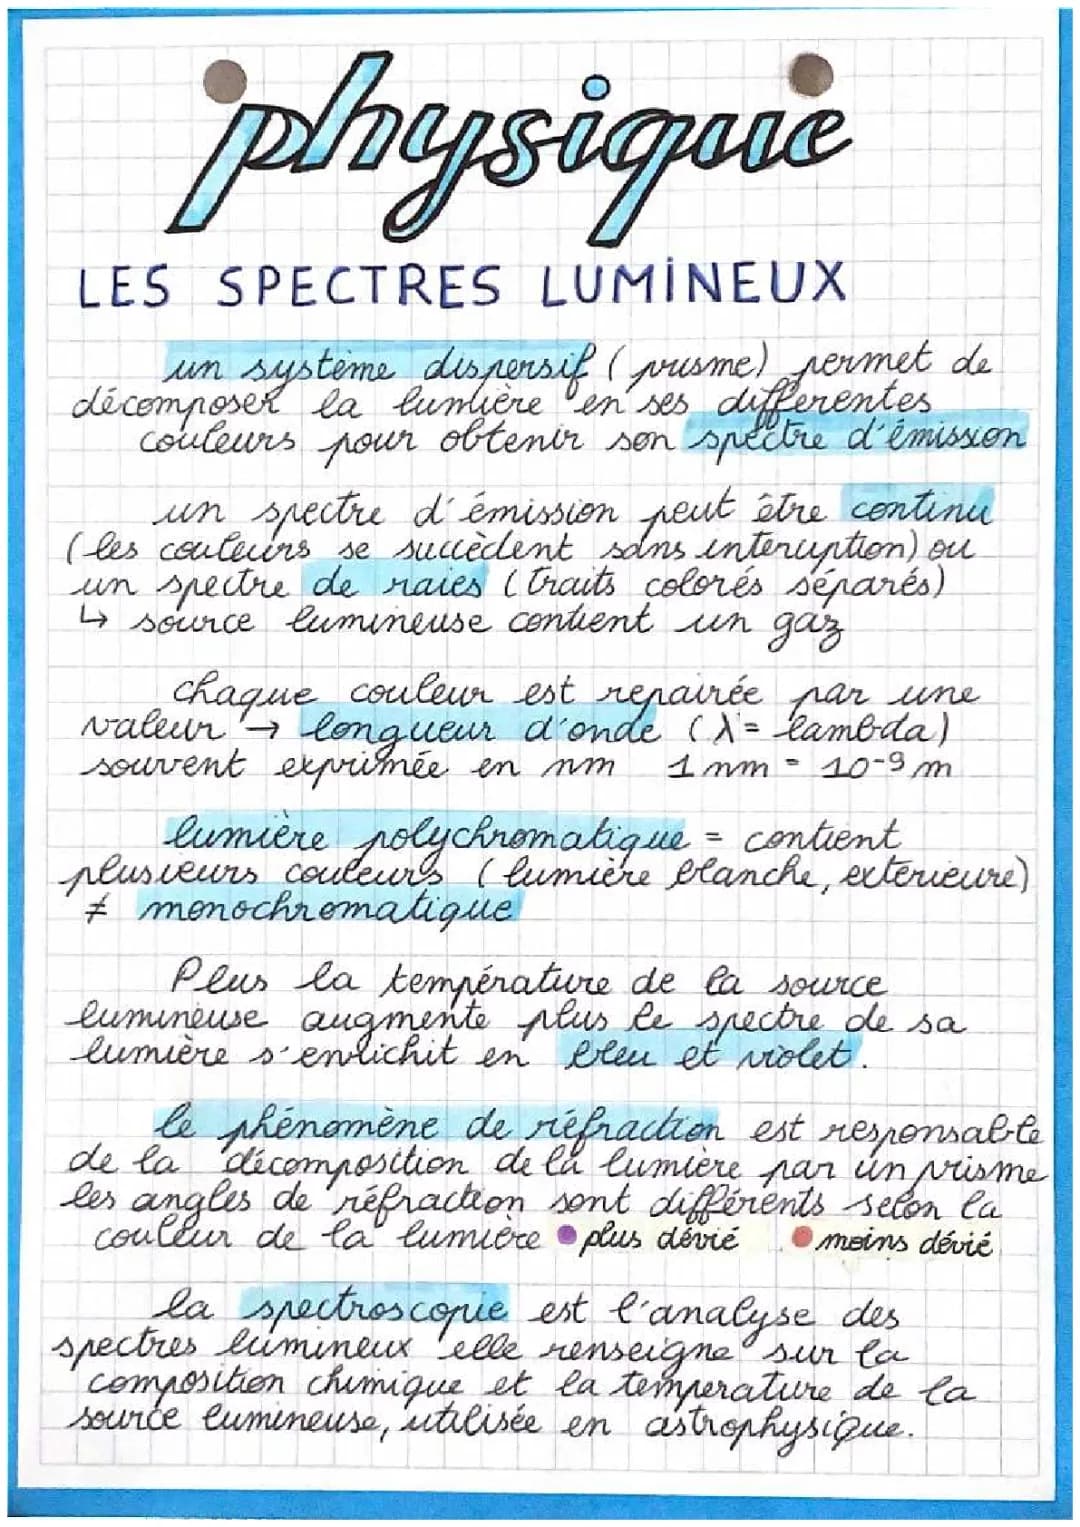 physique
LES SPECTRES LUMINEUX
un système dispersif (prisme) permet de
décomposer la lumière en ses différentes
couleurs pour obtenir son spectre d'émission
un spectre d'émission peut être continu
(les couleurs se succèdent sans interuption) ou
un spectre de raies (traits colorés séparés)
↳ source lumineuse contient un gaz
chaque couleur est repairée par une
valeur → longueur d'onde (λ = lambda)
souvent exprimée en nm 1 nm = 10-9 m
lumière polychromatique = contient
plusieurs couleurs (lumière blanche, extérieure)
≠ monochromatique
Plus la température de la source
lumineuse augmente plus le spectre de sa
lumière s'enrichit en bleu et violet.
le phénomène de réfraction est responsable
de la décomposition de la lumière par un prisme
les angles de réfraction sont différents selon la
couleur de la lumière • plus dévié • moins dévié
la spectroscopie est l'analyse des
spectres lumineux elle renseigne sur la
composition chimique et la température de la
source lumineuse, utilisée en astrophysique.